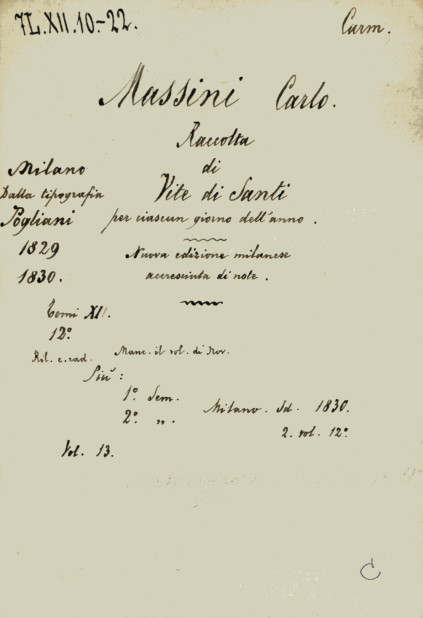 7L.XII.10.-22.
Carm.
Massini Carlo.
Raccolta
di
Vite di Santi
per ciascun giorno dell'anno.
Nuova edizione milanese
accresciuta di note.
Milano
Dalla tipografia
Pogliani
1829
1830.
Tomi XII.
12º
Ril. c. rad. Manc. il vol. di Nov.
Più:
1º Sem.
2º „. Milano. Id. 1830.
2. vol. 12º
Vol. 13.
C